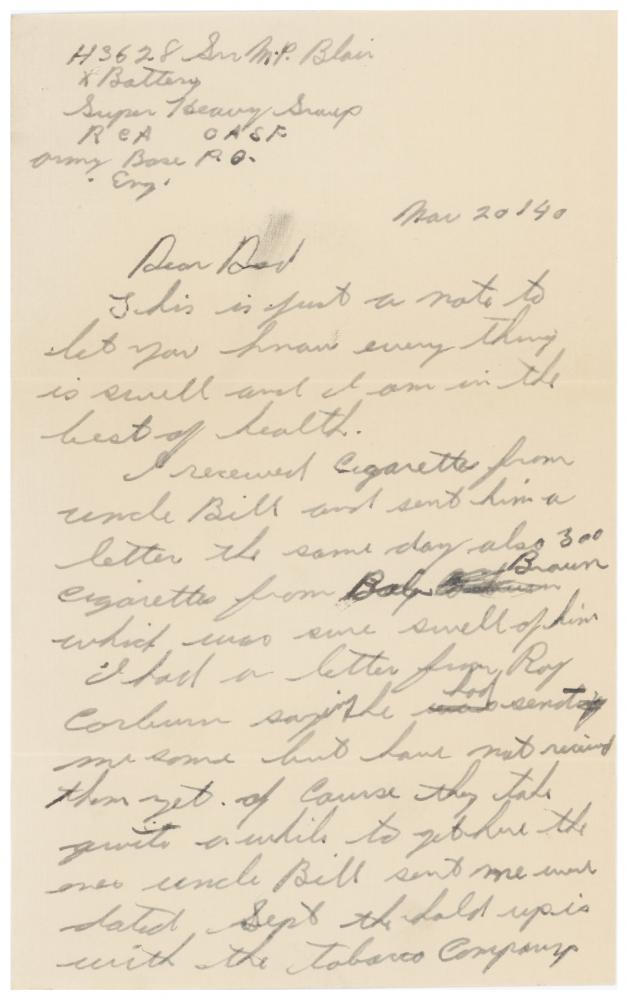 H3628 Gnr M.P. Blair
X Battery
Super Heavy Group
RCA CASF
Army Base P.O.
Eng.
Nov 20/40
Dear Dad
This is just a note to
let you know every thing
is swell and I am in the
best of health.
I received Cigarettes from
uncle Bill and sent him a
letter the same day also 300
cigarettes from Bob Braun
which was sure swell of him
I had a letter from Roy
Corburn saying he had sent
me some but have not received
them yet. of Course they take
quite a while to get here the
ones uncle Bill sent me were
dated Sept the hold up is
with the tobacco Company